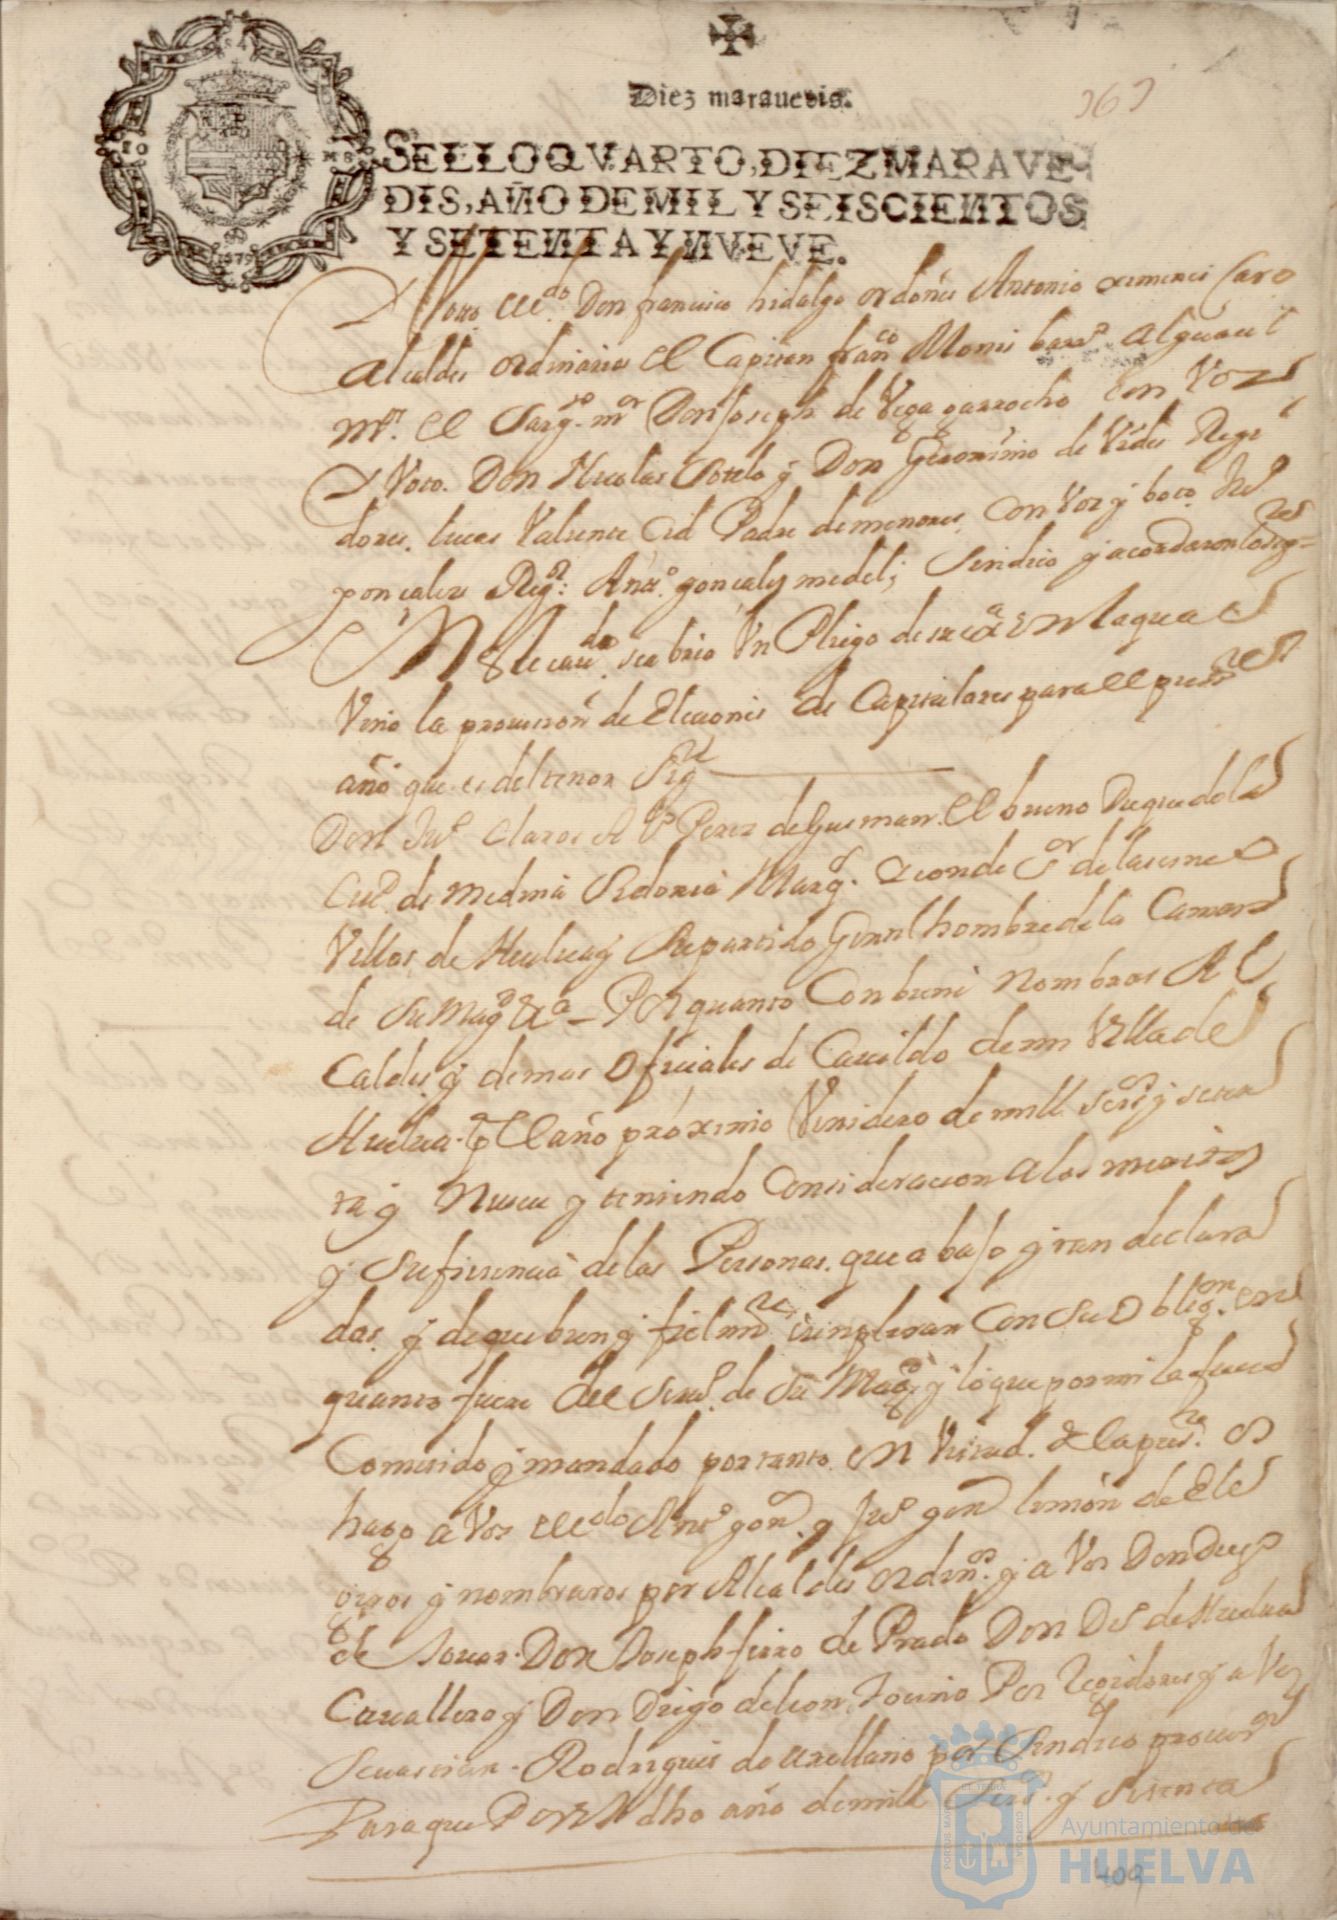 Diez marauedis.
SELLO QVARTO, DIEZ MARAVE-
DIS, AÑO DE MIL Y SEISCIENTOS
Y SETENTA Y NVEVE.
Don francisco hidalgo ordoñes Antonio ximenes Caro
alcaldes ordinarios el Capitan franco Monis alguacil
mor. el Sargto mor Don Joseph de Vega garrocho con Voz
y Voto. Don Nicolas Sotelo y Don Geronimo de Vides Regi
dores, lucas Valiente Cid Padre de menores, con Voz y boto Juo
gonçales Regor. Anto. gonçales medel; Sindico y acordaron lo sigte
En Este cauildo se abrio Un Pliego de su exa En la qual
Vino la prouision de Elecciones de Capitulares para el preste
año que es del tenor Sigte
Don Juo Claros Alo Perez de Gusman. el bueno Duque de la
Ciud. de medina Sidonia Marqs. conde Sor de las
Villas de Huelua y Su partido Gentilhombre de la Camara
de Su Magd &a Por quanto Conbiene Nombrar Al
Caldes y demas Oficiales de Cauildo de mi Villa de
Huelua. el año próximo Venidero de mill seiso y seten
ta y Nueue y teniendo Consideracion a los meritos
y Suficiencia de las Personas. que a bajo yran declara
das. y de que bien y fielmte. cumpliran Con Su Obligon. en
quanto fuere del Seruo. de Su Magd. y lo que por mi le fuere
Cometido y mandado por tanto en Virtud. de la preste.
hago a Vos el do Anto gon. y Juo gon limón de Ele
giros y nombraros por Alcaldes ordinos. y a Vos Don Diego
de Touar. Don Joseph fierro de Prado Don Do de Huelua
Cauallero y Don Diego de leon Tocino Por Regidores y a Vos
Seuastian. Rodrigues de arellano por Sindico procuror
Para que Por El dho año de mill Seiso. y Setenta
409
Ayuntamiento de
HUELVA